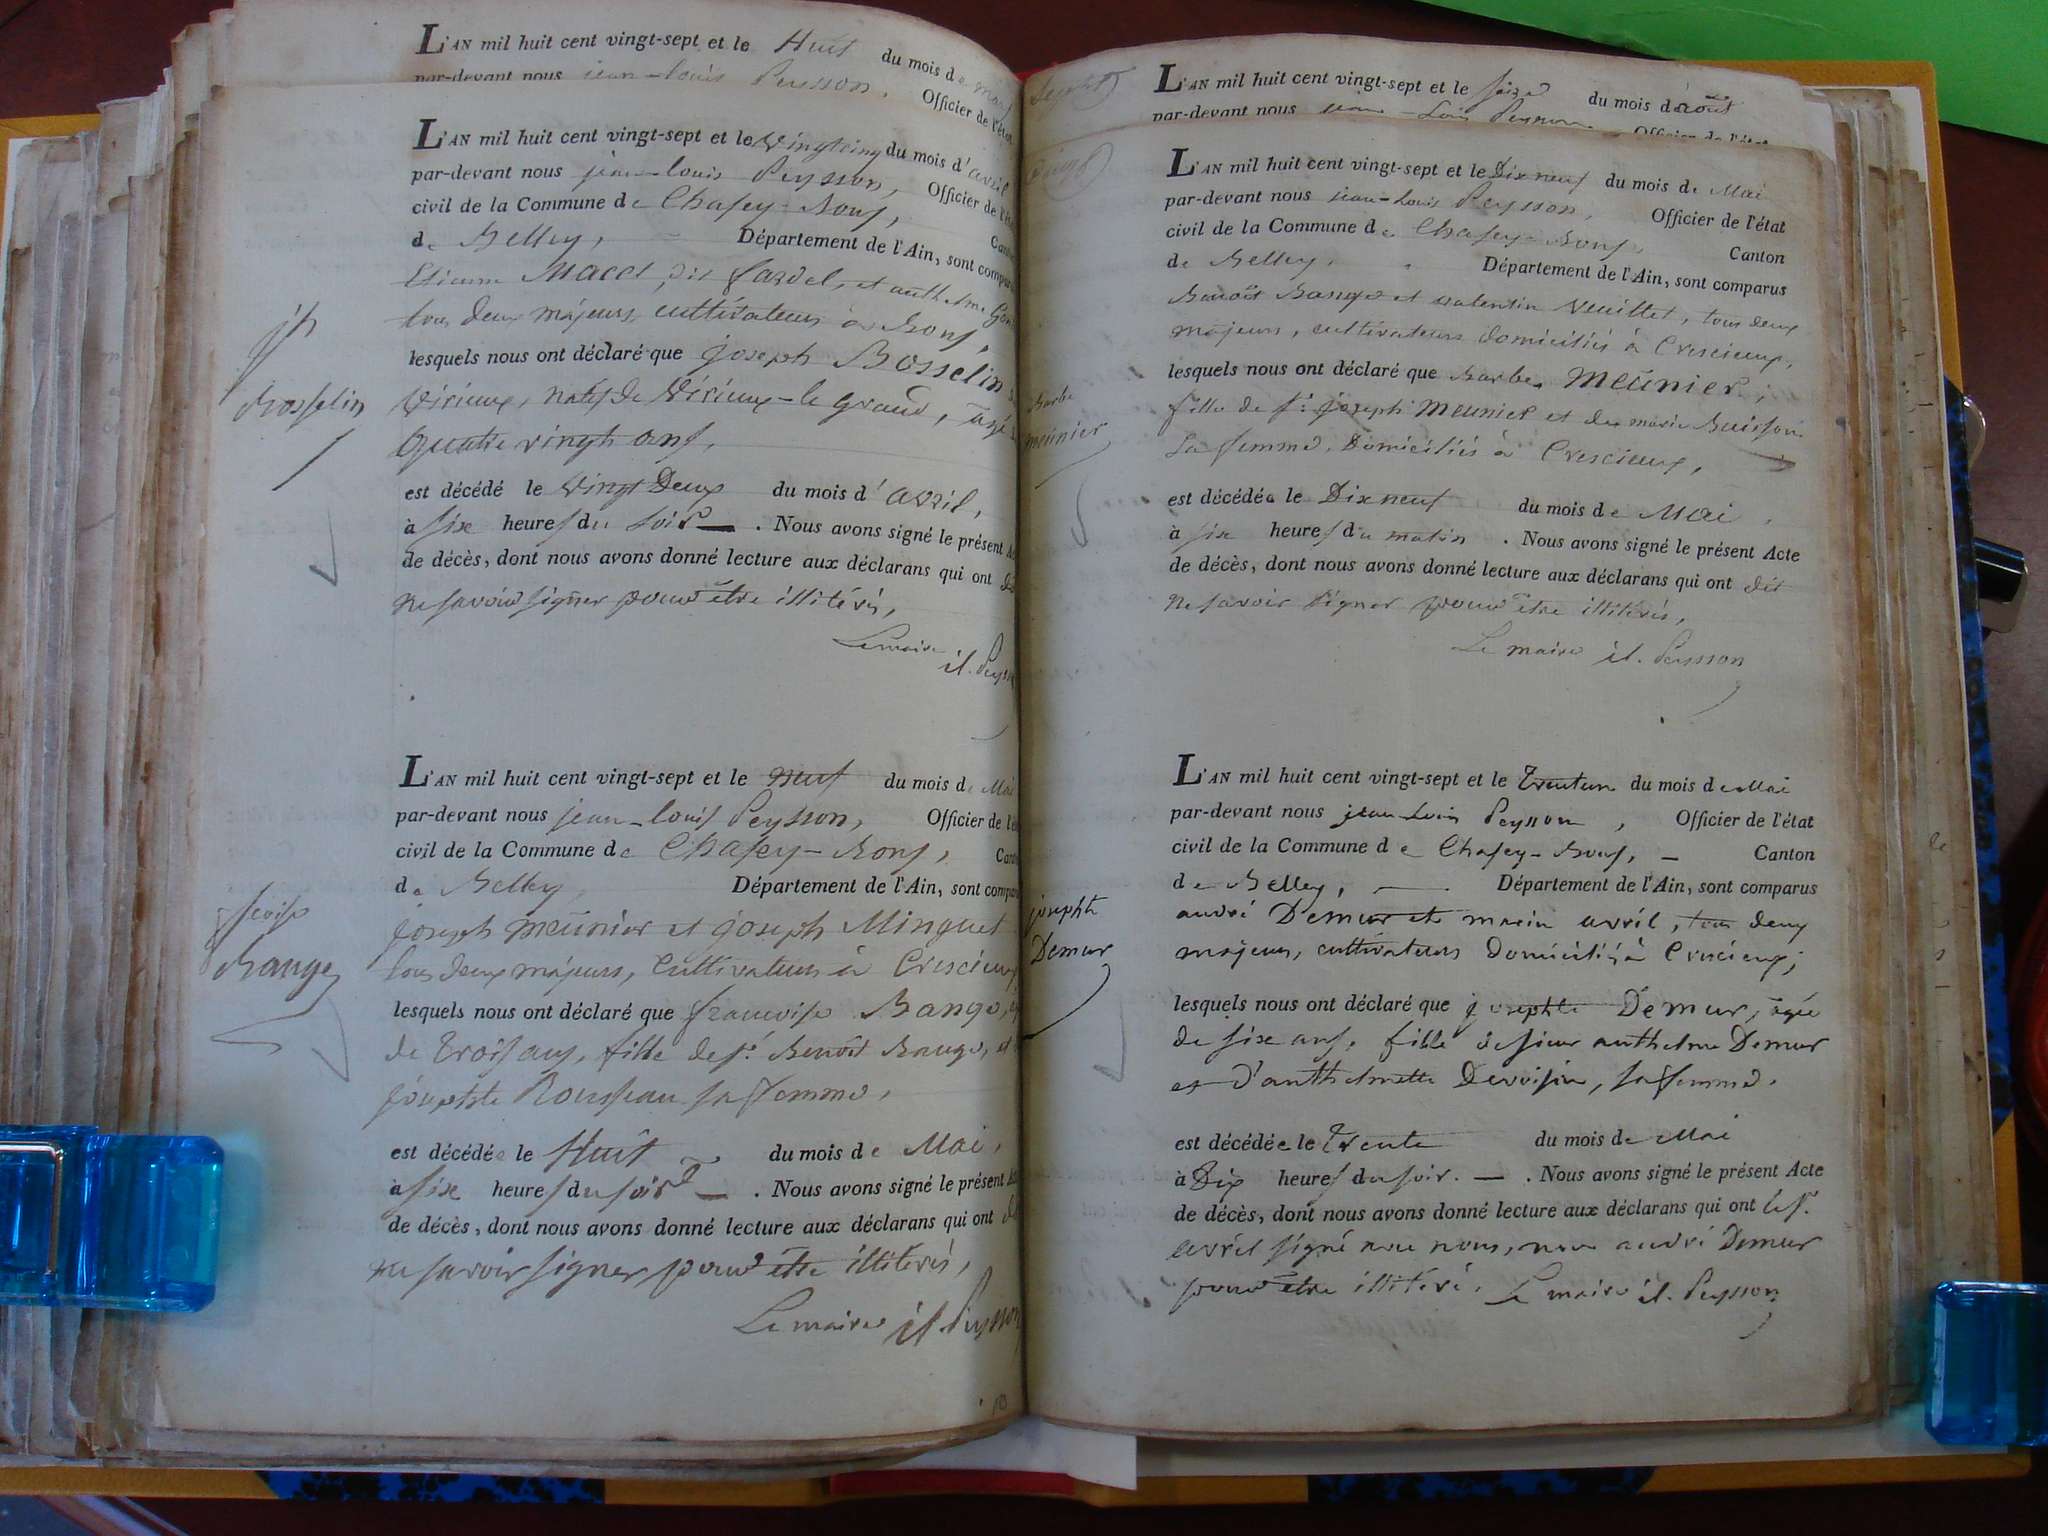 L'AN mil huit cent vingt-sept et le Huit du mois de mars
par-devant nous jean-louis Peysson, Officier de l'état
L'AN mil huit cent vingt-sept et le vingtcinq du mois d'avril
par-devant nous jean-louis Peysson, Officier de l'état
civil de la Commune de Chasey-Bons, Canton
de Belley, Département de l'Ain, sont comparus
Etienne Macet, dit fardel, et anthelme
tous deux majeurs, cultivateurs à Bons,
lesquels nous ont déclaré que joseph Bosselin
Virieux, natif de Virieux-le grand, agé
quatre vingt ans,
est décédé le vingt Deux du mois d'avril,
à six heures du soir. Nous avons signé le présent
de décès, dont nous avons donné lecture aux déclarans qui ont dit
ne savoir signer pour être illitérés,
Le maire
jl. Peysson
jh
Bosselin
L'AN mil huit cent vingt-sept et le neuf du mois de Mai
par-devant nous jean-louis Peysson, Officier de l'
civil de la Commune de Chasey-Bons, Canton
de Belley Département de l'Ain, sont comparus
joseph meunier et joseph Minguet
tous deux majeurs, cultivateurs à Crescieux
lesquels nous ont déclaré que francoise Bange,
de trois ans, fille de sr. Benoit Bange, et
josephte Rousseau sa femme,
est décédée le Huit du mois de Mai,
à six heures du soir. Nous avons signé le présent
de décès, dont nous avons donné lecture aux déclarans qui ont dit
ne savoir signer pour être illitérés,
Le maire jl. Peysson
Bange
L'AN mil huit cent vingt-sept et le seize du mois d'août
par-devant nous jean-Louis Peysson Officier de l'état
L'AN mil huit cent vingt-sept et le Dix neuf du mois de Mai
par-devant nous jean-Louis Peysson, Officier de l'état
civil de la Commune de Chasey-Bons, Canton
de Belley, Département de l'Ain, sont comparus
Benoît Bange et valentin Veuillet, tous deux
majeurs, cultivateurs domiciliés à Crescieux,
lesquels nous ont déclaré que Barbe Meunier,
fille de sr. joseph meunier et de marie Buisson
sa femme, Domiciliés à Crescieux,
est décédée le Dix neuf du mois de Mai,
à six heures du matin. Nous avons signé le présent Acte
de décès, dont nous avons donné lecture aux déclarans qui ont dit
ne savoir signer pour être illitérés,
Le maire jl. Peysson
Barbe
meunier
L'AN mil huit cent vingt-sept et le trenteun du mois de Mai
par-devant nous jean-Louis Peysson, Officier de l'état
civil de la Commune de Chasey-Bons, Canton
de Belley, Département de l'Ain, sont comparus
andré Demur et marin avril, tous deux
majeurs, cultivateurs domiciliés à Crescieux,
lesquels nous ont déclaré que josephte Demur, agée
de six ans, fille de sieur anthelme Demur
et d'anthelmette Devoisin, sa femme.
est décédée le trente du mois de Mai
à Dix heures du soir. Nous avons signé le présent Acte
de décès, dont nous avons donné lecture aux déclarans qui ont
avril signé avec nous, non andré Demur
pour être illitéré. Le maire jl. Peysson
josephte
Demur